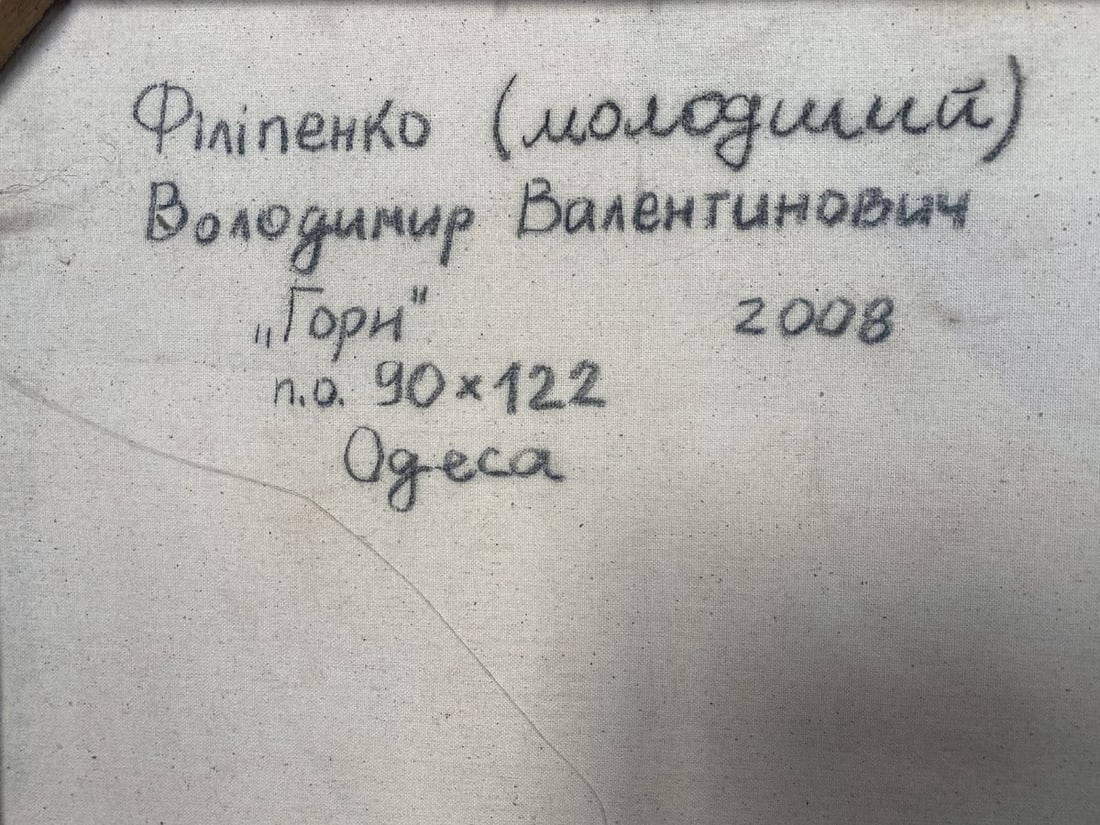 Філіпенко (молодший)
Володимир Валентинович
„Гори" 2008
п.о. 90×122
Одеса